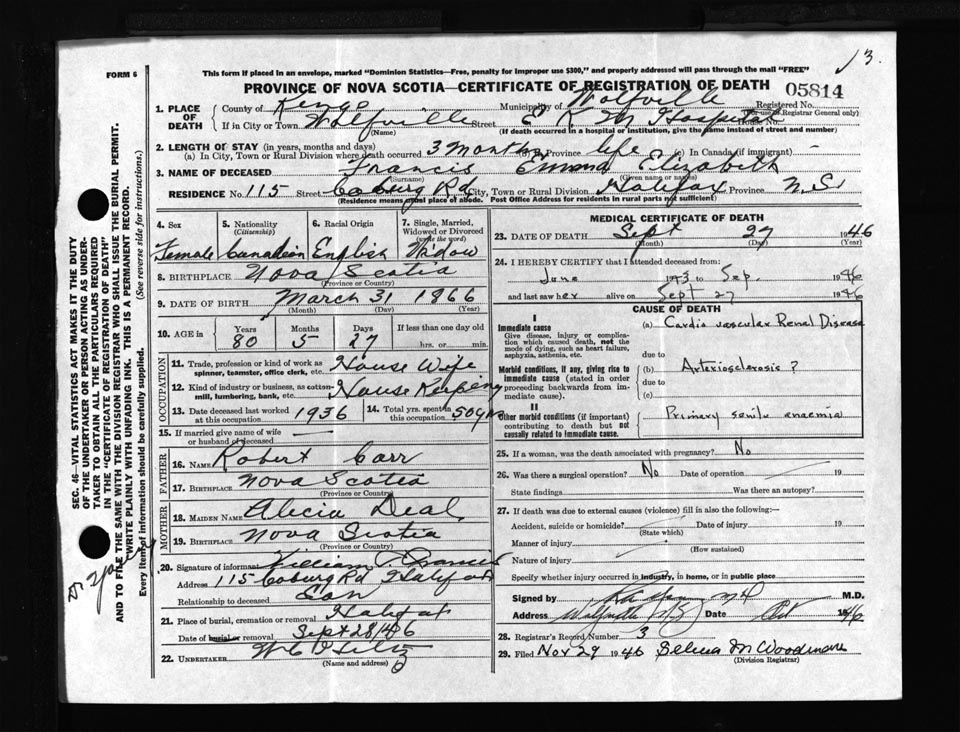 13.
FORM 6
This form if placed in an envelope, marked "Dominion Statistics—Free, penalty for improper use $300," and properly addressed will pass through the mail "FREE"
PROVINCE OF NOVA SCOTIA—CERTIFICATE OF REGISTRATION OF DEATH
05814
1. PLACE OF DEATH
County of Kings Municipality of Wolfville Registered No.
(For use of Registrar General only)
If in City or Town Wolfville Street E K M Hospital House No.
(Name) (If death occurred in a hospital or institution, give the name instead of street and number)
2. LENGTH OF STAY (in years, months and days)
(a) In City, Town or Rural Division where death occurred 3 months (b) Province life (c) In Canada (if immigrant) -
3. NAME OF DECEASED Francis Emma Elizabeth
(Surname) (Given name or names)
RESIDENCE No. 115 Street Coburg Rd City, Town or Rural Division Halifax Province N.S.
(Residence means usual place of abode. Post Office Address for residents in rural parts not sufficient)
4. Sex Female
5. Nationality (Citizenship) Canadian
6. Racial Origin English
7. Single, Married, Widowed or Divorced (write the word) Widow
8. BIRTHPLACE Nova Scotia
(Province or Country)
9. DATE OF BIRTH March 31 1966
(Month) (Day) (Year)
10. AGE in Years 80 Months 5 Days 27 If less than one day old hrs. or min.
OCCUPATION
11. Trade, profession or kind of work as spinner, teamster, office clerk, etc. House Wife
12. Kind of industry or business, as cotton-mill, lumbering, bank, etc. House Keeping
13. Date deceased last worked at this occupation 1936
14. Total yrs. spent in this occupation 50 yrs
15. If married give name of wife or husband of deceased —
FATHER
16. NAME Robert Carr
17. BIRTHPLACE Nova Scotia
(Province or Country)
MOTHER
18. MAIDEN NAME Alicia Deal
19. BIRTHPLACE Nova Scotia
(Province or Country)
20. Signature of informant William Francis
Address 115 Coburg Rd Halifax
Relationship to deceased Son
21. Place of burial, cremation or removal Halifax
Date of burial or removal Sept 28/46
22. UNDERTAKER
(Name and address)
MEDICAL CERTIFICATE OF DEATH
23. DATE OF DEATH Sept 27 1946
(Month) (Day) (Year)
24. I HEREBY CERTIFY that I attended deceased from:
June 193 to Sep. 1946
and last saw her alive on Sept 27 1946
CAUSE OF DEATH
I
Immediate cause
Give disease, injury or complication which caused death, not the mode of dying, such as heart failure, asphyxia, asthenia, etc.
(a) Cardio vascular Renal Disease
due to
Morbid conditions, if any, giving rise to immediate cause (stated in order proceeding backwards from immediate cause).
(b) Arteriosclerosis ?
due to
(c)
II
Other morbid conditions (if important) contributing to death but not causally related to immediate cause.
Primary senile anaemia
25. If a woman, was the death associated with pregnancy? No
26. Was there a surgical operation? No Date of operation 19
State findings Was there an autopsy?
27. If death was due to external causes (violence) fill in also the following:—
Accident, suicide or homicide? Date of injury 19
(State which)
Manner of injury
(How sustained)
Nature of injury
Specify whether injury occurred in industry, in home, or in public place
Signed by M.D.
Address Wolfville N.S. Date Oct 1946
28. Registrar's Record Number 3
29. Filed Nov 29 1946 Selena M Woodman
(Division Registrar)
SEC. 46—VITAL STATISTICS ACT MAKES IT THE DUTY
OF THE UNDERTAKER OR PERSON ACTING AS UNDER-
TAKER TO OBTAIN ALL THE PARTICULARS REQUIRED
IN THE "CERTIFICATE OF REGISTRATION OF DEATH"
AND TO FILE THE SAME WITH THE DIVISION REGISTRAR WHO SHALL ISSUE THE BURIAL PERMIT.
WRITE PLAINLY WITH UNFADING INK. THIS IS A PERMANENT RECORD.
Every item of information should be carefully supplied. (See reverse side for instructions.)